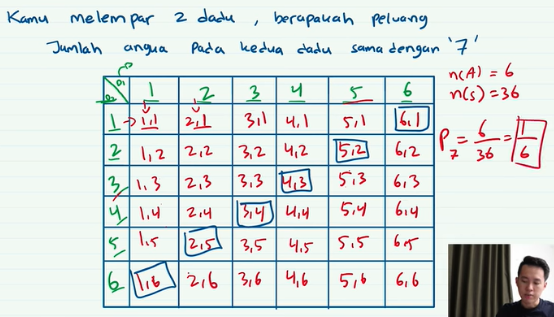 Kamu melempar 2 dadu, berapakah peluang
Jumlah angka pada kedua dadu sama dengan '7'
1 2 3 4 5 6
1 1,1 2,1 3,1 4,1 5,1 6,1
2 1,2 2,2 3,2 4,2 5,2 6,2
3 1,3 2,3 3,3 4,3 5,3 6,3
4 1,4 2,4 3,4 4,4 5,4 6,4
5 1,5 2,5 3,5 4,5 5,5 6,5
6 1,6 2,6 3,6 4,6 5,6 6,6
n(A) = 6
n(s) = 36
P7 = 6/36 = 1/6